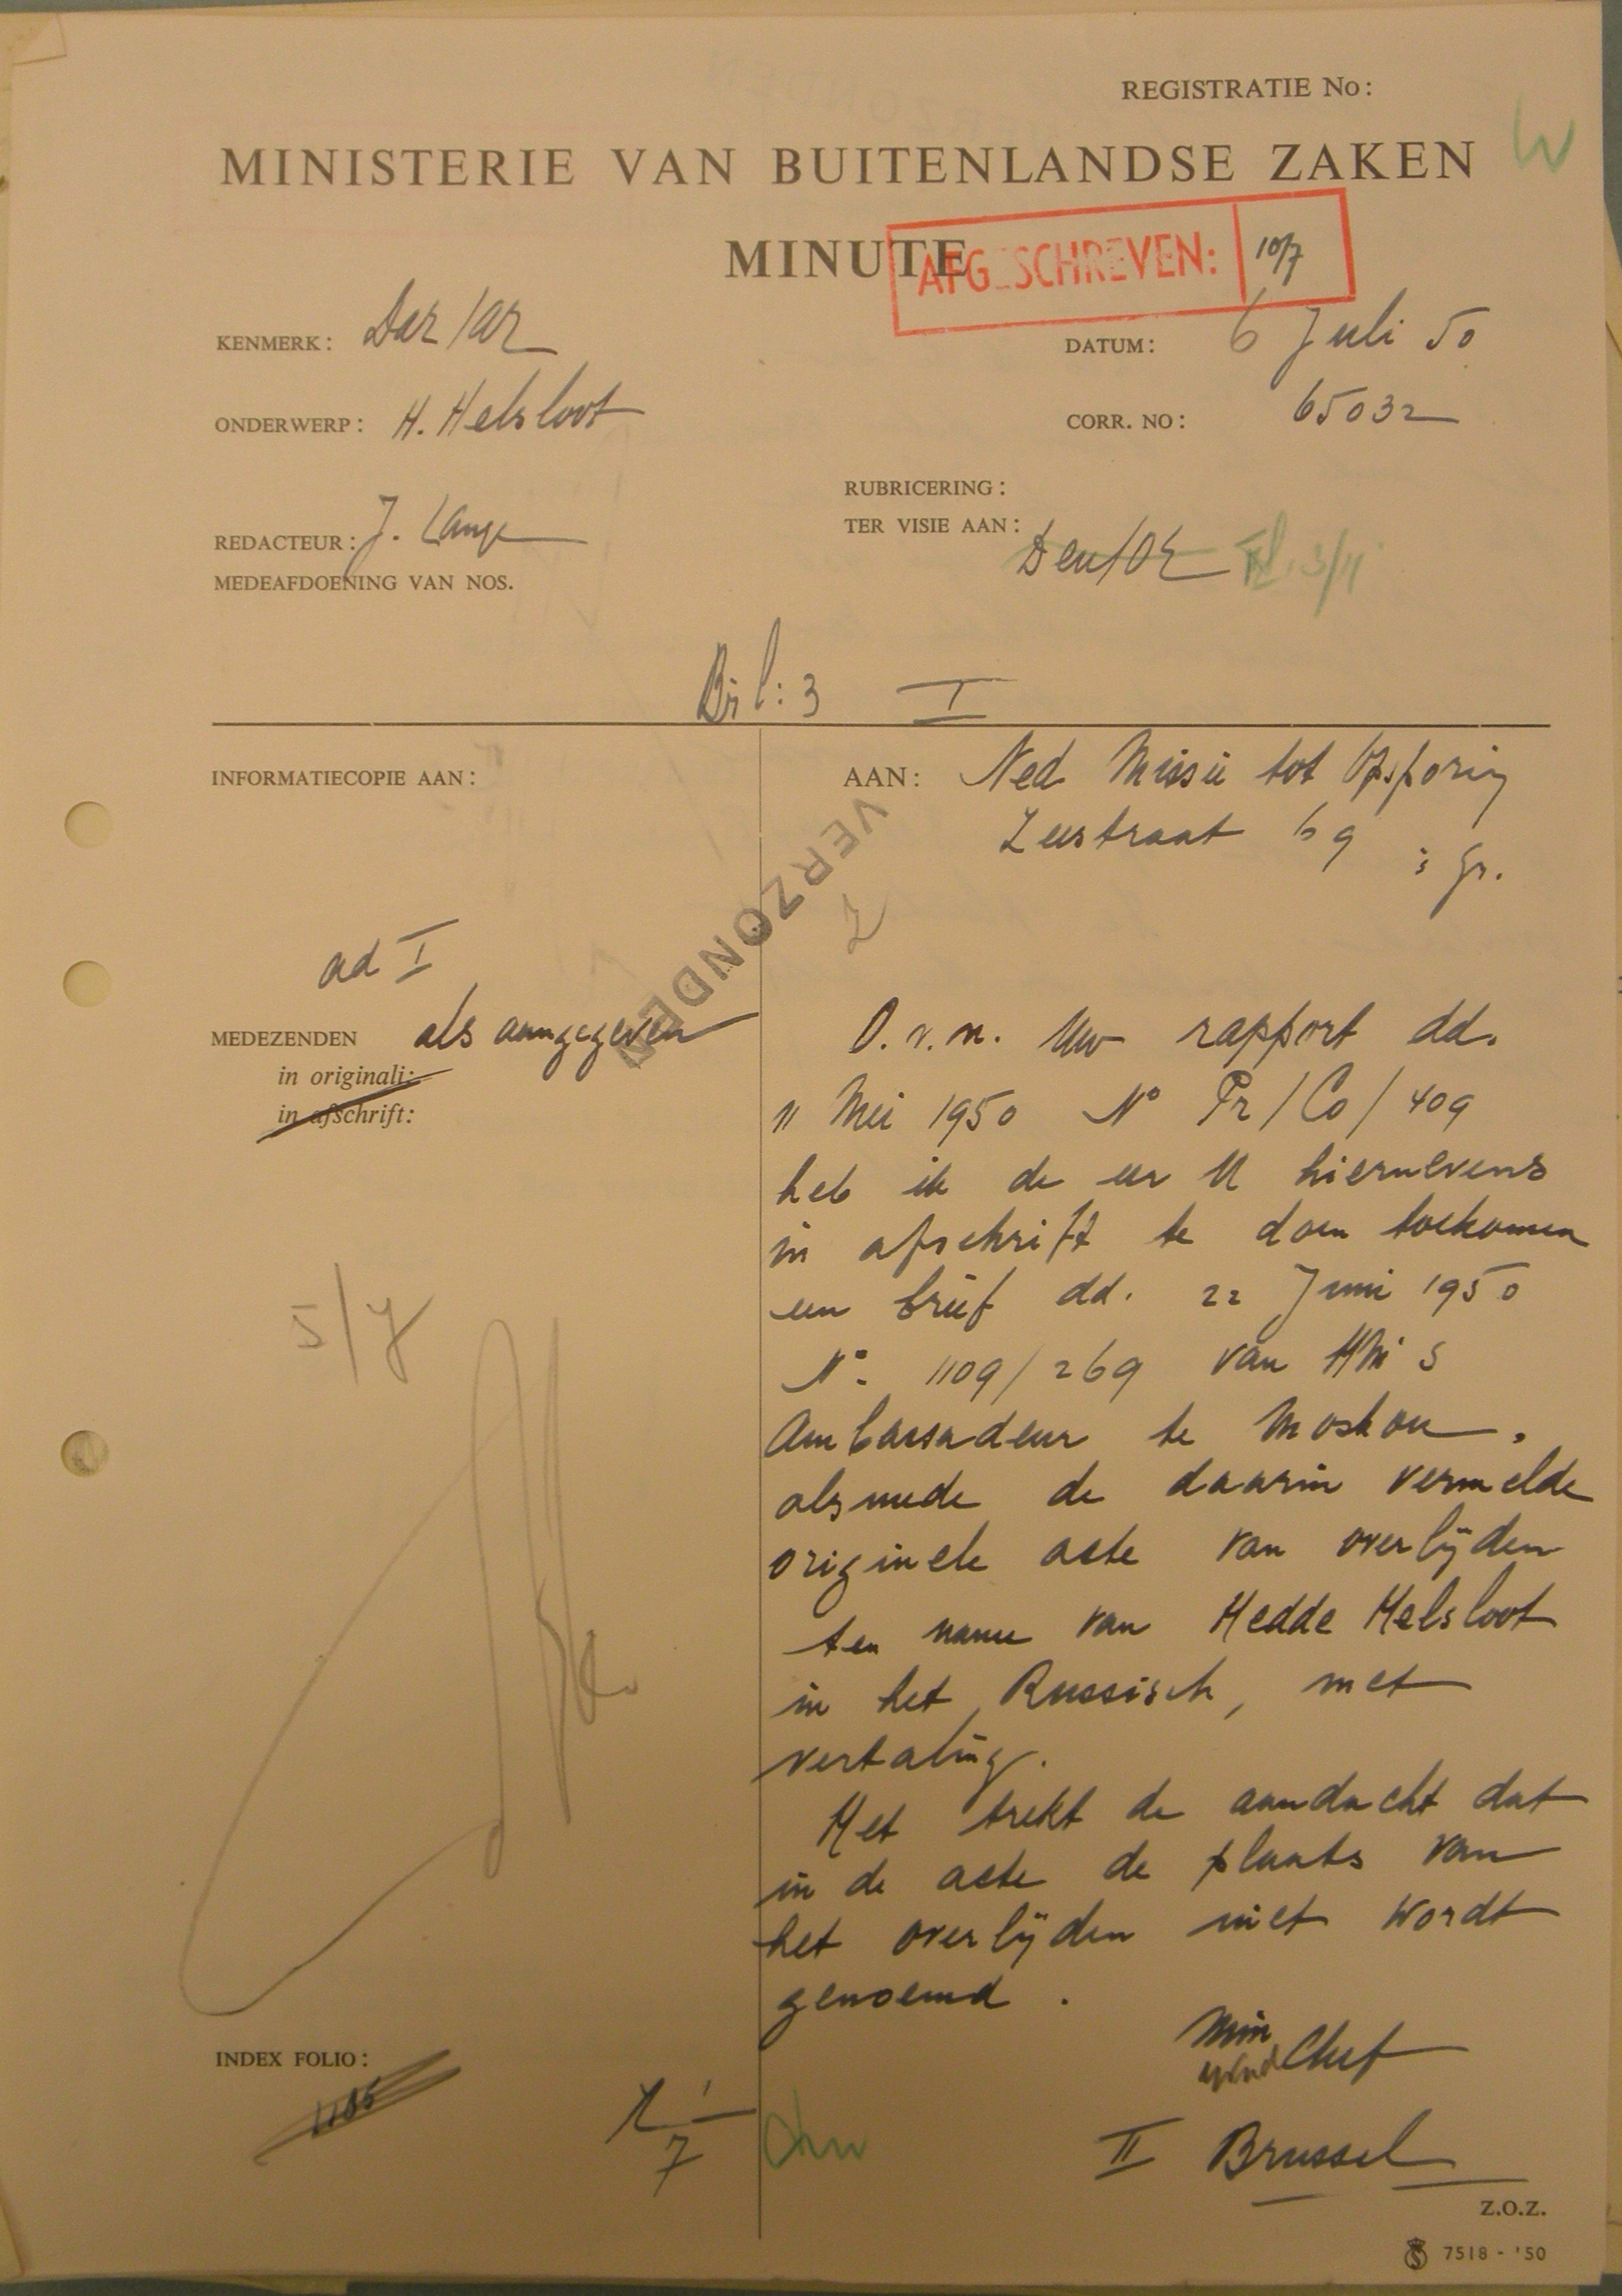 REGISTRATIE No:
W
MINISTERIE VAN BUITENLANDSE ZAKEN
MINUTE
AFGESCHREVEN: 10/7
KENMERK: Daz/az
DATUM: 6 Juli 50
ONDERWERP: H. Helsloot
CORR. NO: 65032
RUBRICERING:
REDACTEUR: J. Lange
TER VISIE AAN: Deu/OE
MEDEAFDOENING VAN NOS.
Bijl: 3 I
INFORMATIECOPIE AAN:
AAN: Ned Missie tot Opsporing
Zeestraat 69 's Gr.
VERZONDEN
ad I
MEDEZENDEN als aangegeven
in originali:
in afschrift:
O.v.m. Uw rapport dd.
11 Mei 1950 No Pr/Co/409
heb ik de eer U hiernevens
in afschrift te doen toekomen
een brief dd. 22 Juni 1950
No. 1109/269 van HMs
Ambassadeur te Moskou,
alsmede de daarin vermelde
originele acte van overlijden
ten name van Hedde Helsloot
in het Russisch, met
vertaling.
Het trekt de aandacht dat
in de acte de plaats van
het overlijden niet wordt
genoemd.
5/7
Min
Chef
INDEX FOLIO:
1185
7
II Brussel
Z.O.Z.
7518 - '50